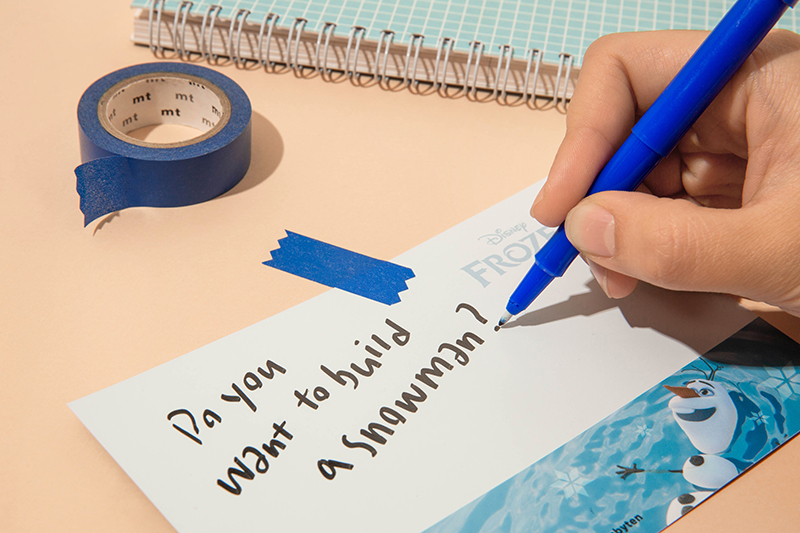 mt mt
mt mt mt
Disney
FROZE
Do you
want to build
a snowman?